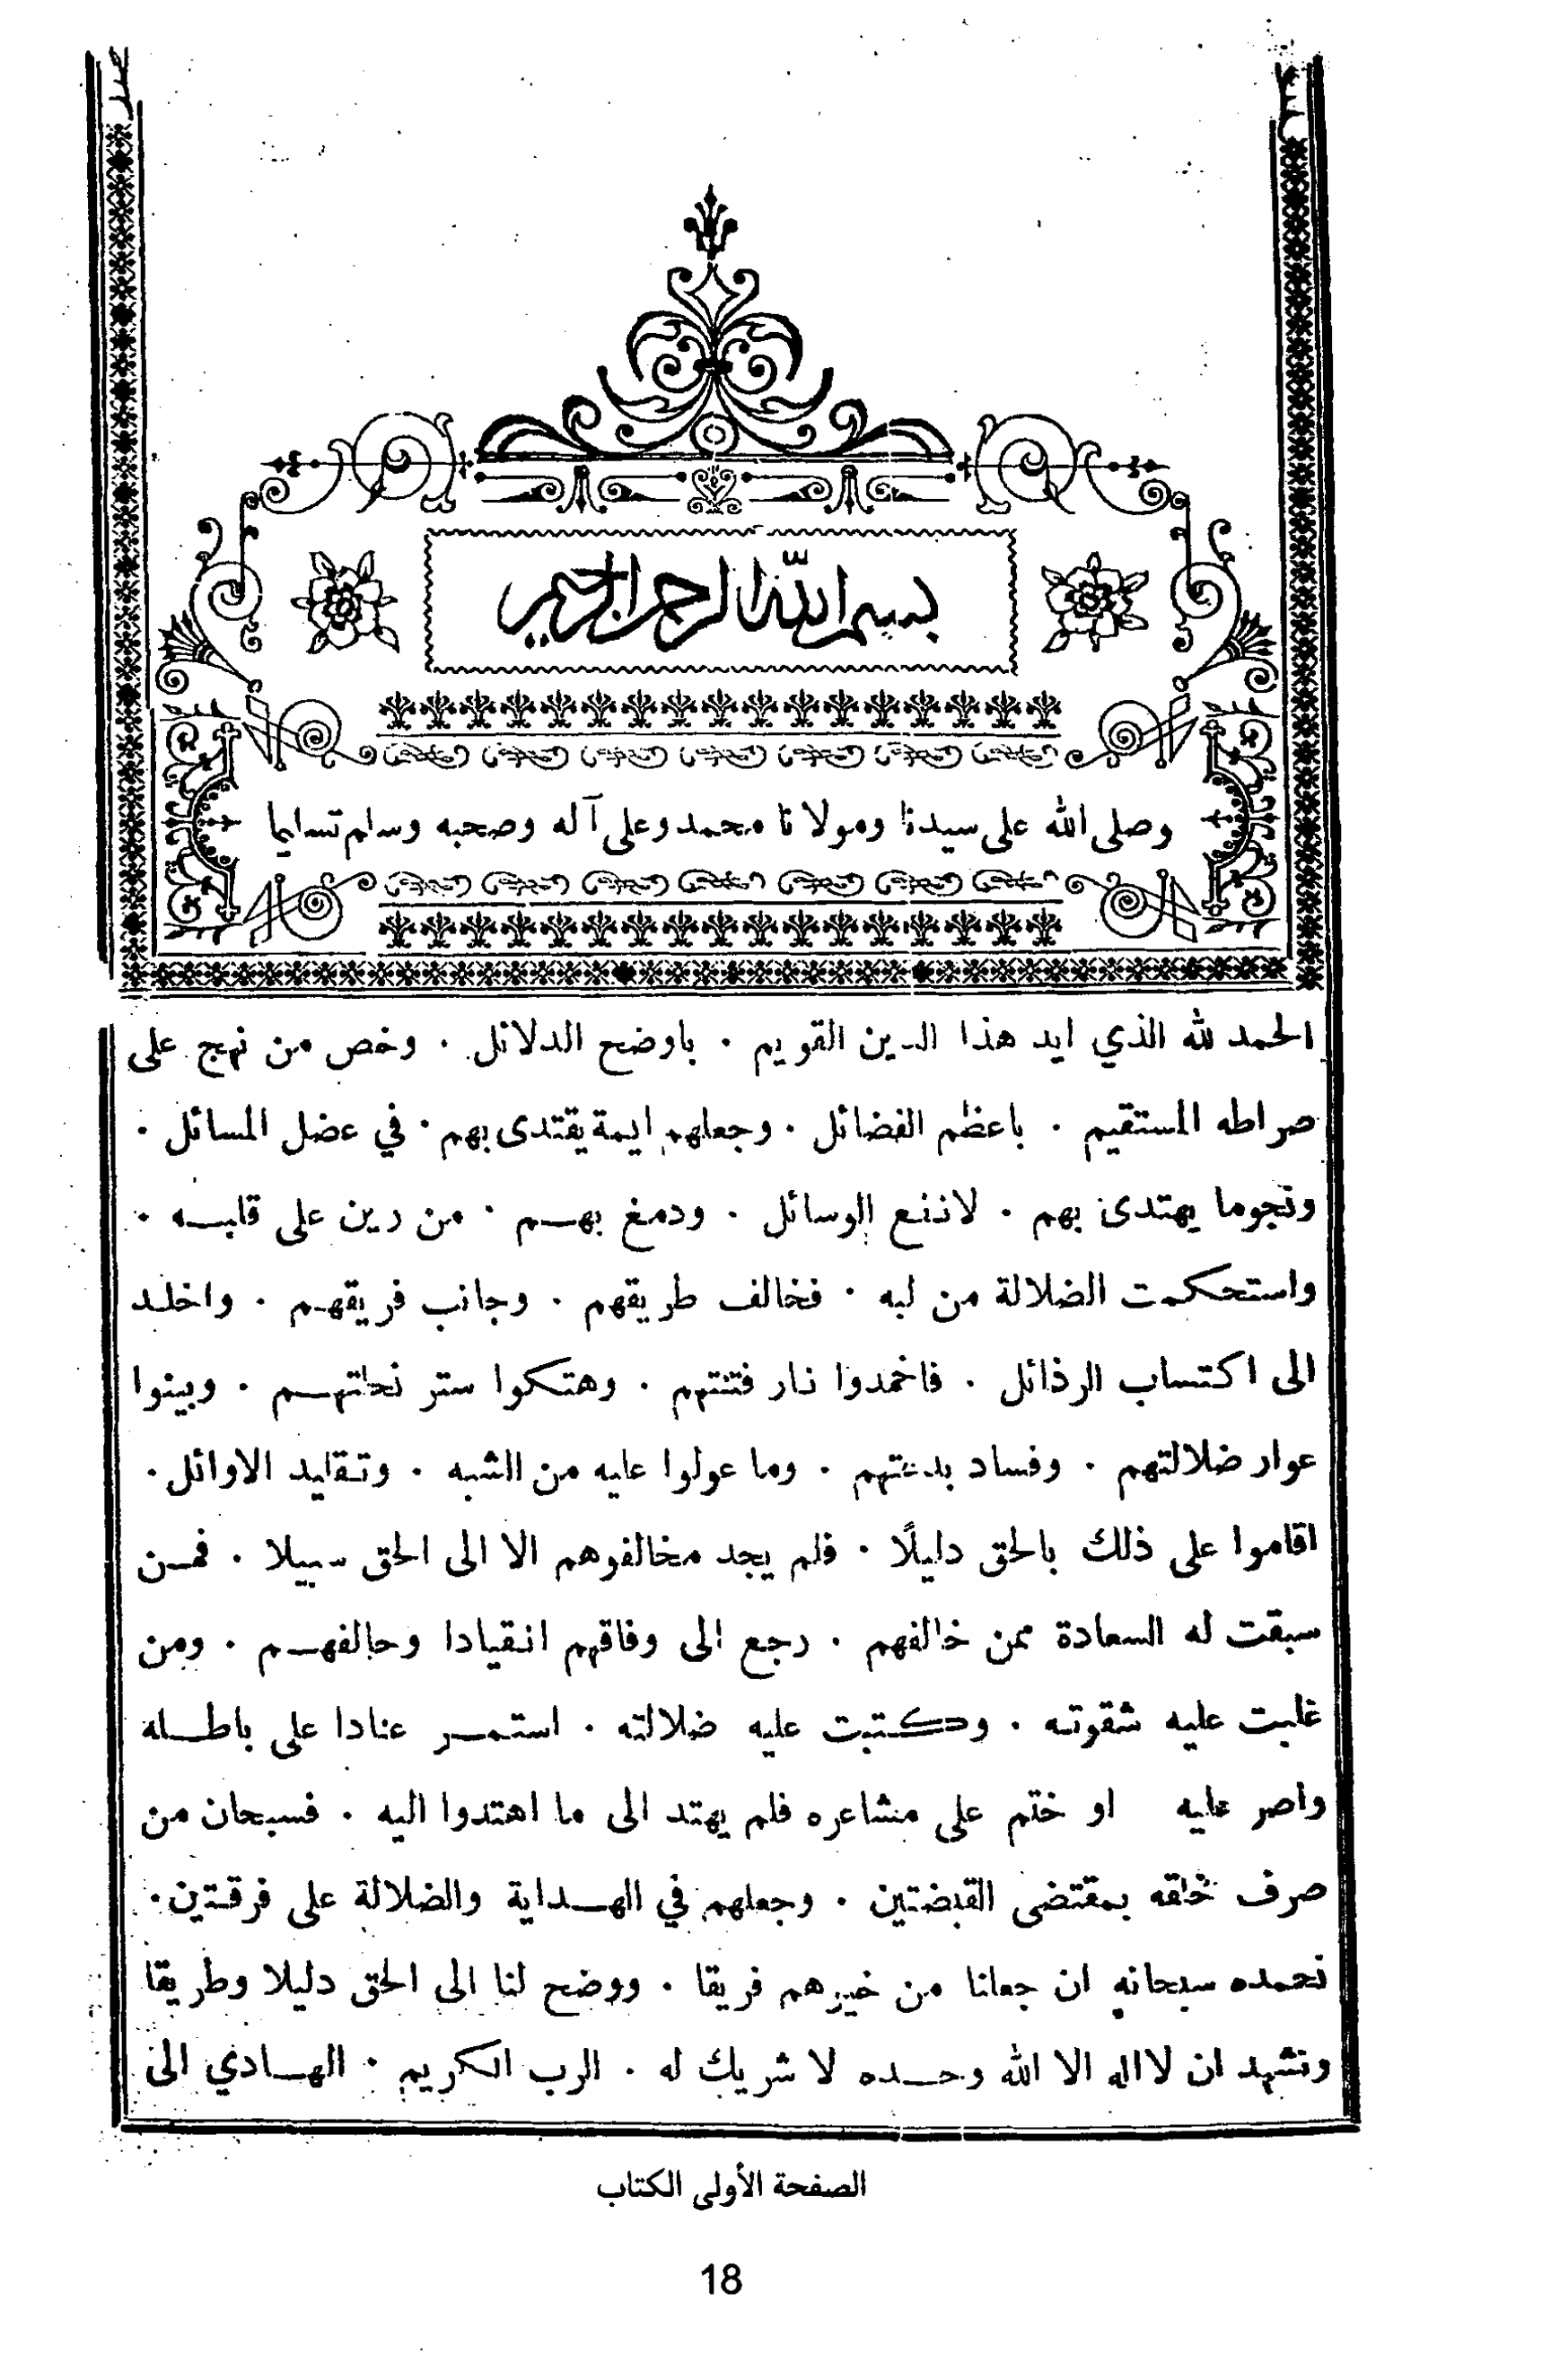 بسم الله الرحمن الرحيم
وصلى الله على سيدنا ومولانا محمد وعلى آله وصحبه وسلم تسليما
الحمد لله الذي ايد هذا الدين القويم ٠ باوضح الدلائل ٠ وخص من نهج على
صراطه المستقيم ٠ باعظم الفضائل ٠ وجعلهم ايمة يقتدى بهم ٠ في عضل المسائل ٠
ونجوما يهتدى بهم ٠ لانفع الوسائل ٠ ودمغ بهم ٠ من رين على قلبه ٠
واستحكمت الضلالة من لبه ٠ فخالف طريقهم ٠ وجانب فريقهم ٠ واخلد
الى اكتساب الرذائل ٠ فاخمدوا نار فتنتهم ٠ وهتكوا ستر نحلتهم ٠ وبينوا
عوار ضلالتهم ٠ وفساد بدعتهم ٠ وما عولوا عليه من الشبه ٠ وتقليد الاوائل ٠
اقاموا على ذلك بالحق دليلًا ٠ فلم يجد مخالفوهم الا الى الحق سبيلا ٠ فمن
سبقت له السعادة ممن خالفهم ٠ رجع الى وفاقهم انقيادا وحالفهم ٠ ومن
غلبت عليه شقوته ٠ وكتبت عليه ضلالته ٠ استمر عنادا على باطله
واصر عليه او ختم على مشاعره فلم يهتد الى ما اهتدوا اليه ٠ فسبحان من
صرف خلقه بمقتضى القبضتين ٠ وجعلهم في الهداية والضلالة على فرقتين ٠
نحمده سبحانه ان جعلنا من خيرهم فريقا ٠ ووضح لنا الى الحق دليلا وطريقا
ونشهد ان لا اله الا الله وحده لا شريك له ٠ الرب الكريم ٠ الهادي الى
الصفحة الأولى الكتاب
18